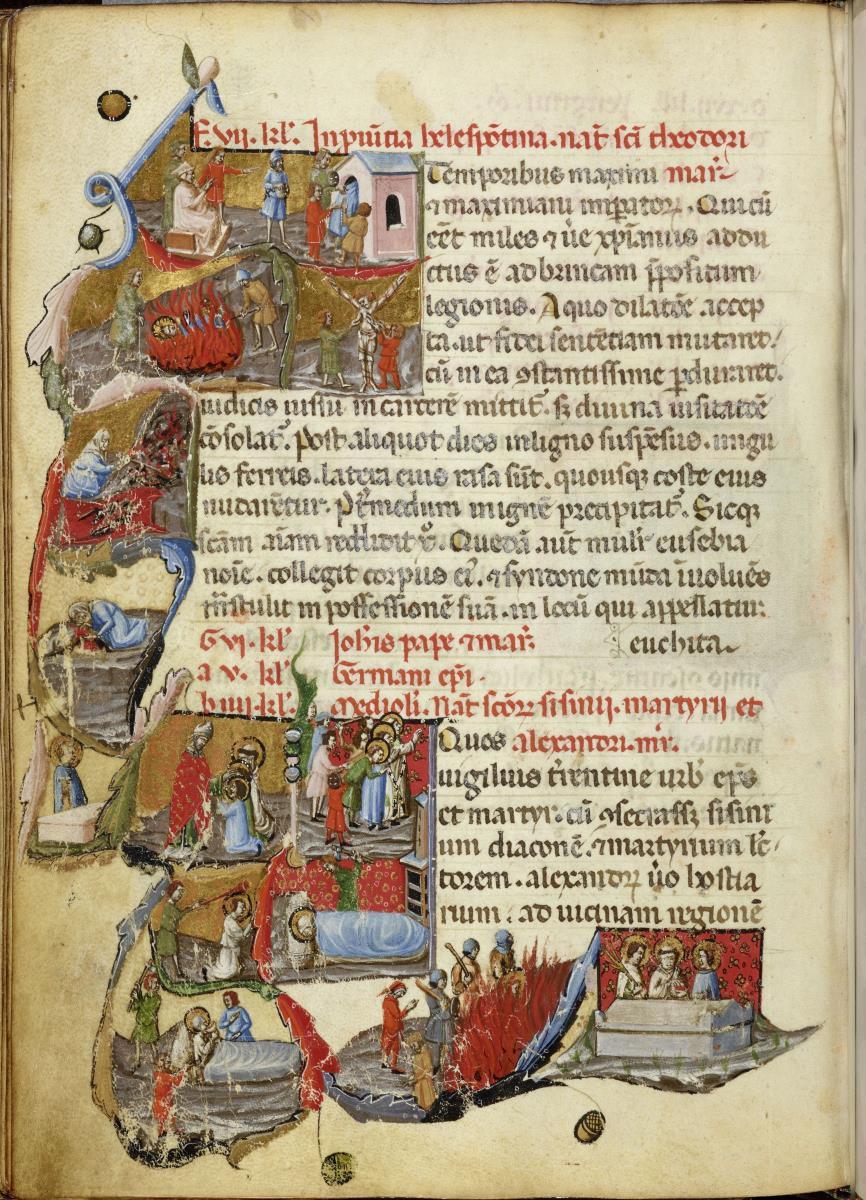 F. vii. kl'. In puīcia helespōtina. nat̄ sc̄i theodori
Temporibus maximi mar̄
⁊ maximiani imꝑatoꝝ. Qui cū
eēt miles ⁊ ūe xp̄ianus addu
ctus ē ad brincam p̄positum
legionis. A quo dilatōe accep
ta. ut fidei sentētiam mutaret.
cū in ea ꝯstantissime ꝑduraret.
iudicis iussu in carcerē mittit̄. sꝫ diuina uisitatōe
cōsolat̄. Post aliquot dies in ligno suspēsus. ungu
lis ferreis. latera eius rasa sūt. quousqꝫ coste eius
nudarētur. medium in ignē precipitat̄. Sicqꝫ
scām aīam reddidit Quedā aūt muli' eusebia
noīe. collegit corpus ei'. ⁊ syndone mūda īuoluēs
trāstulit in possessionē suā. in locū qui appellatur
G vi. kl' Iohis pape ⁊ mar̄ euchita.
a v. kl' Germani ep̄i.
b iiii. kl'. Medioli. Nat̄ scōꝝ sisinij. martyrij et
Quos alexandri. mr̄.
uigilius t̄rentine urb' ep̄s
et martyr. cū ꝯsecrassꝫ sisini
um diaconē. ⁊ martyrium lē
ctorem. alexandꝝ ūo hostia
rium. ad uicinam regionē